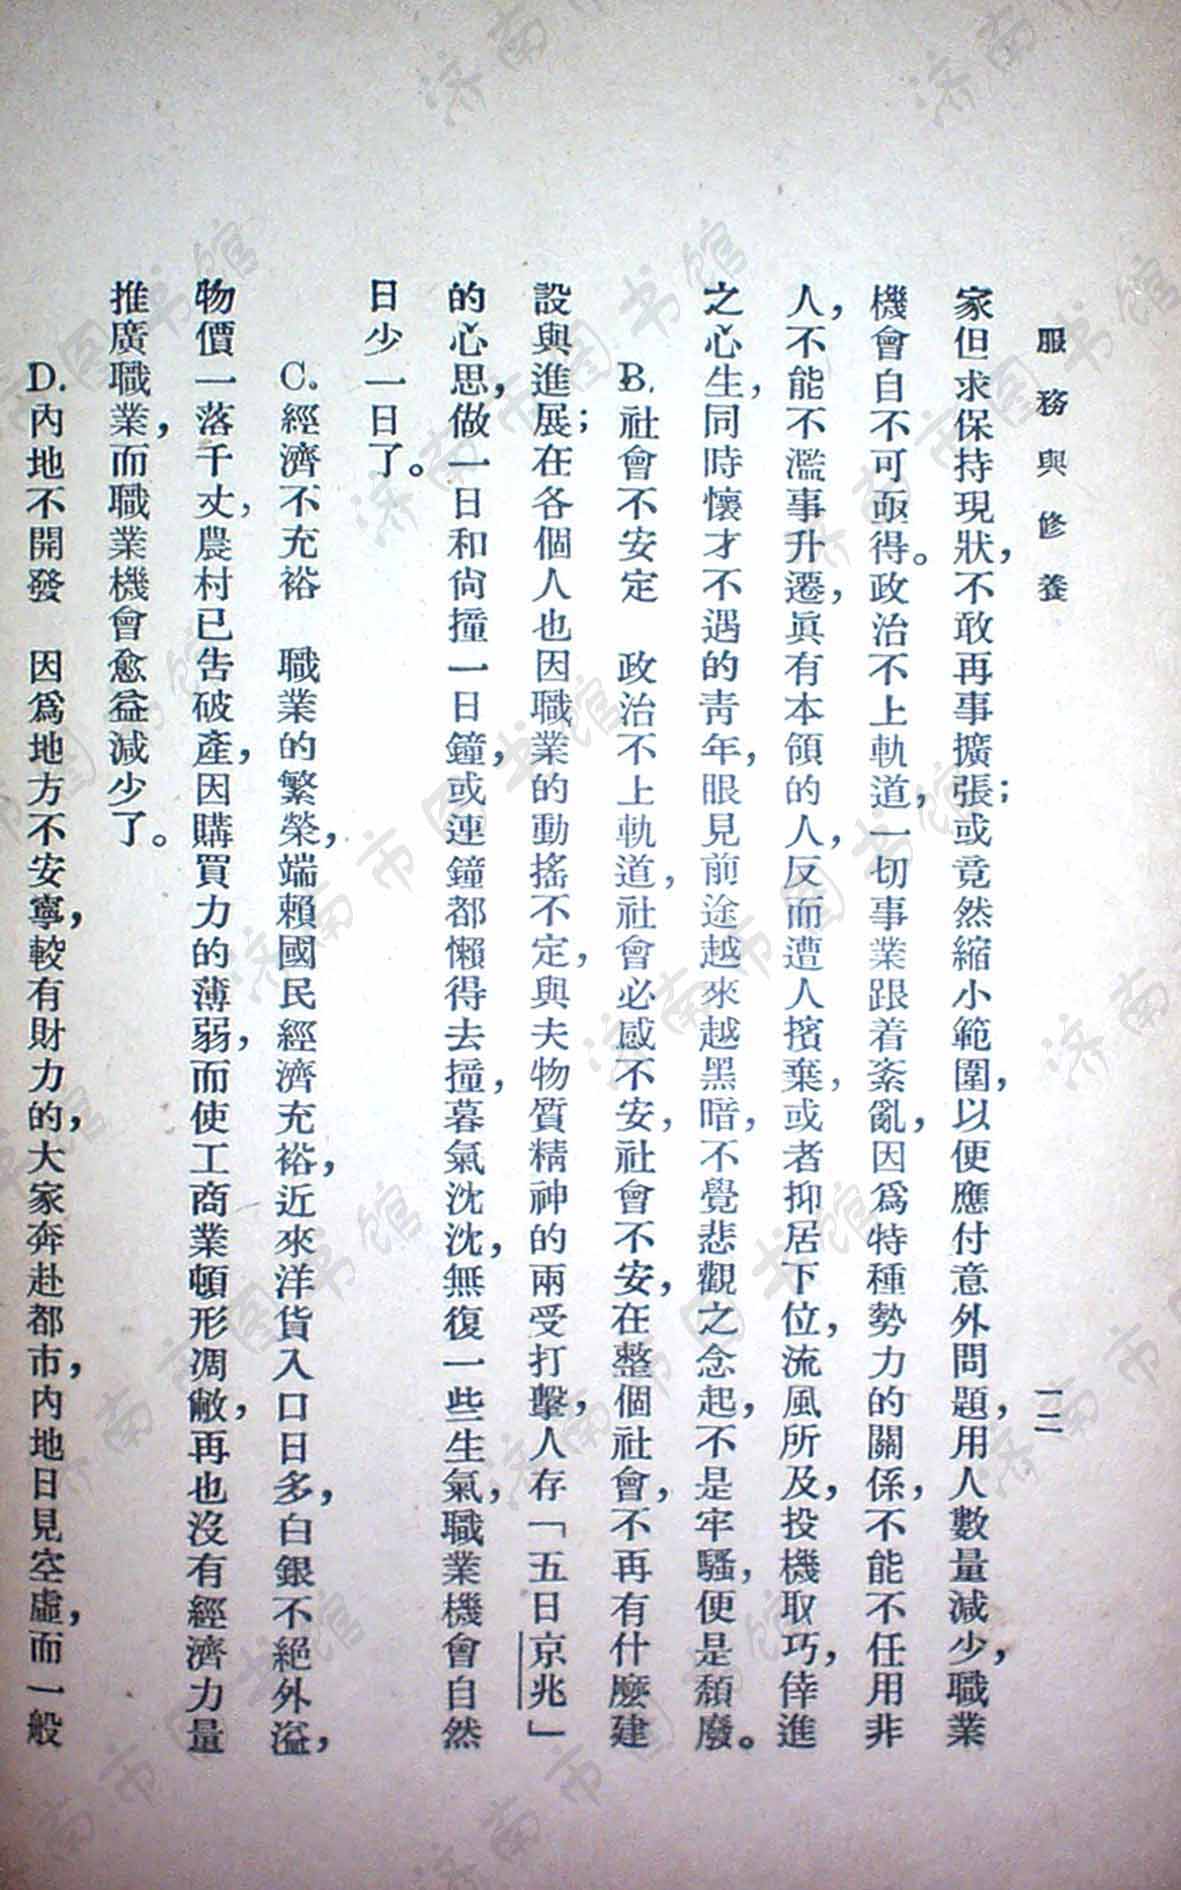 服務與修養
一二
家但求保持現狀，不敢再事擴張；或竟然縮小範圍，以便應付意外問題，用人數量減少，職業
機會自不可亟得。政治不上軌道，一切事業跟着紊亂，因爲特種勢力的關係，不能不任用非
人，不能不濫事升遷，眞有本領的人，反而遭人擯棄，或者抑居下位，流風所及，投機取巧，倖進
之心生，同時懷才不遇的靑年，眼見前途越來越黑暗，不覺悲觀之念起，不是牢騷，便是頹廢。
B. 社會不安定　政治不上軌道，社會必感不安，社會不安，在整個社會，不再有什麼建
設與進展；在各個人也因職業的動搖不定，與夫物質精神的兩受打擊，人存「五日京兆」
的心思，做一日和尙撞一日鐘，或連鐘都懶得去撞，暮氣沈沈，無復一些生氣，職業機會自然
日少一日了。
C. 經濟不充裕　職業的繁榮，端賴國民經濟充裕，近來洋貨入口日多，白銀不絕外溢，
物價一落千丈，農村已吿破產，因購買力的薄弱，而使工商業頓形凋敝，再也沒有經濟力量
推廣職業，而職業機會愈益減少了。
D. 內地不開發　因爲地方不安寧，較有財力的，大家奔赴都市，內地日見空虛，而一般
济南市图书馆